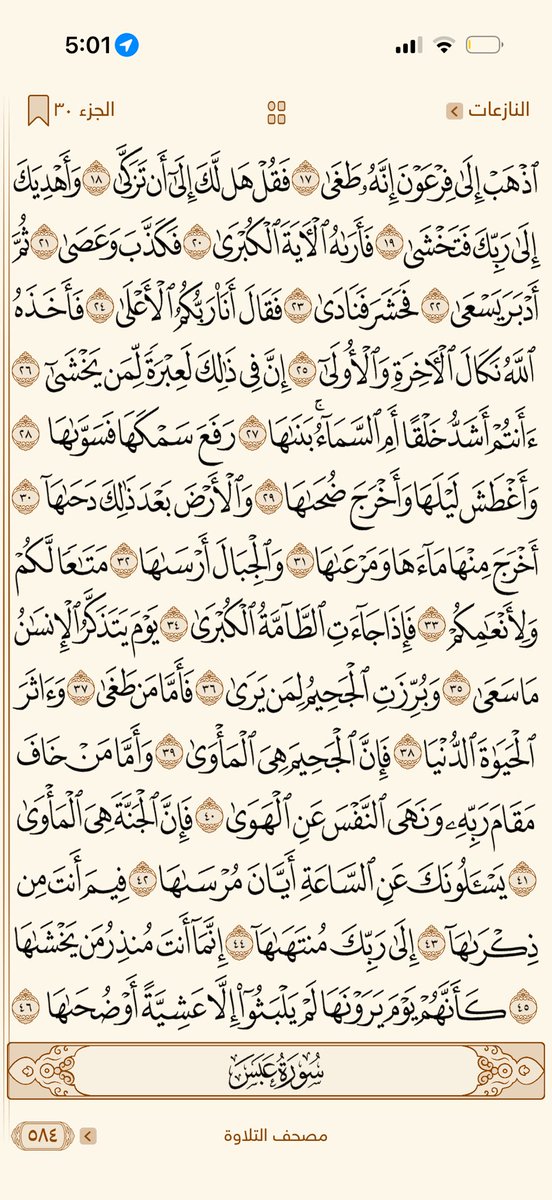 5:01
النازعات
الجزء ٣٠
ٱذْهَبْ إِلَىٰ فِرْعَوْنَ إِنَّهُۥ طَغَىٰ ١٧ فَقُلْ هَل لَّكَ إِلَىٰٓ أَن تَزَكَّىٰ ١٨ وَأَهْدِيَكَ
إِلَىٰ رَبِّكَ فَتَخْشَىٰ ١٩ فَأَرَىٰهُ ٱلْأٓيَةَ ٱلْكُبْرَىٰ ٢٠ فَكَذَّبَ وَعَصَىٰ ٢١ ثُمَّ
أَدْبَرَ يَسْعَىٰ ٢٢ فَحَشَرَ فَنَادَىٰ ٢٣ فَقَالَ أَنَا۠ رَبُّكُمُ ٱلْأَعْلَىٰ ٢٤ فَأَخَذَهُ
ٱللَّهُ نَكَالَ ٱلْأٓخِرَةِ وَٱلْأُولَىٰٓ ٢٥ إِنَّ فِي ذَٰلِكَ لَعِبْرَةً لِّمَن يَخْشَىٰٓ ٢٦
ءَأَنتُمْ أَشَدُّ خَلْقًا أَمِ ٱلسَّمَآءُۚ بَنَىٰهَا ٢٧ رَفَعَ سَمْكَهَا فَسَوَّىٰهَا ٢٨
وَأَغْطَشَ لَيْلَهَا وَأَخْرَجَ ضُحَىٰهَا ٢٩ وَٱلْأَرْضَ بَعْدَ ذَٰلِكَ دَحَىٰهَآ ٣٠
أَخْرَجَ مِنْهَا مَآءَهَا وَمَرْعَىٰهَا ٣١ وَٱلْجِبَالَ أَرْسَىٰهَا ٣٢ مَتَٰعًا لَّكُمْ
وَلِأَنْعَٰمِكُمْ ٣٣ فَإِذَا جَآءَتِ ٱلطَّآمَّةُ ٱلْكُبْرَىٰ ٣٤ يَوْمَ يَتَذَكَّرُ ٱلْإِنسَٰنُ
مَا سَعَىٰ ٣٥ وَبُرِّزَتِ ٱلْجَحِيمُ لِمَن يَرَىٰ ٣٦ فَأَمَّا مَن طَغَىٰ ٣٧ وَءَاثَرَ
ٱلْحَيَوٰةَ ٱلدُّنْيَا ٣٨ فَإِنَّ ٱلْجَحِيمَ هِيَ ٱلْمَأْوَىٰ ٣٩ وَأَمَّا مَنْ خَافَ
مَقَامَ رَبِّهِۦ وَنَهَى ٱلنَّفْسَ عَنِ ٱلْهَوَىٰ ٤٠ فَإِنَّ ٱلْجَنَّةَ هِيَ ٱلْمَأْوَىٰ
٤١ يَسْـَٔلُونَكَ عَنِ ٱلسَّاعَةِ أَيَّانَ مُرْسَىٰهَا ٤٢ فِيمَ أَنتَ مِن
ذِكْرَىٰهَآ ٤٣ إِلَىٰ رَبِّكَ مُنتَهَىٰهَآ ٤٤ إِنَّمَآ أَنتَ مُنذِرُ مَن يَخْشَىٰهَا
٤٥ كَأَنَّهُمْ يَوْمَ يَرَوْنَهَا لَمْ يَلْبَثُوٓا۟ إِلَّا عَشِيَّةً أَوْ ضُحَىٰهَا ٤٦
سُورَةُ عَبَسَ
مصحف التلاوة
٥٨٤